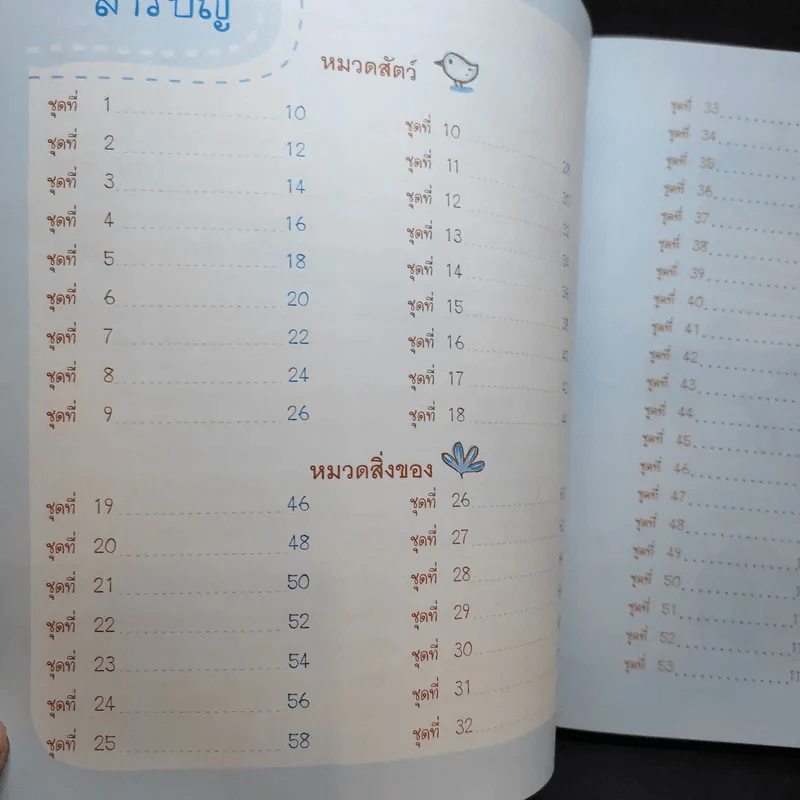 สารบัญ
หมวดสัตว์
ชุดที่ 1 10
ชุดที่ 2 12
ชุดที่ 3 14
ชุดที่ 4 16
ชุดที่ 5 18
ชุดที่ 6 20
ชุดที่ 7 22
ชุดที่ 8 24
ชุดที่ 9 26
ชุดที่ 10
ชุดที่ 11
ชุดที่ 12
ชุดที่ 13
ชุดที่ 14
ชุดที่ 15
ชุดที่ 16
ชุดที่ 17
ชุดที่ 18
หมวดสิ่งของ
ชุดที่ 19 46
ชุดที่ 20 48
ชุดที่ 21 50
ชุดที่ 22 52
ชุดที่ 23 54
ชุดที่ 24 56
ชุดที่ 25 58
ชุดที่ 26
ชุดที่ 27
ชุดที่ 28
ชุดที่ 29
ชุดที่ 30
ชุดที่ 31
ชุดที่ 32
ชุดที่ 33
ชุดที่ 34
ชุดที่ 35
ชุดที่ 36
ชุดที่ 37
ชุดที่ 38
ชุดที่ 39
ชุดที่ 40
ชุดที่ 41
ชุดที่ 42
ชุดที่ 43
ชุดที่ 44
ชุดที่ 45
ชุดที่ 46
ชุดที่ 47
ชุดที่ 48
ชุดที่ 49
ชุดที่ 50
ชุดที่ 51
ชุดที่ 52
ชุดที่ 53